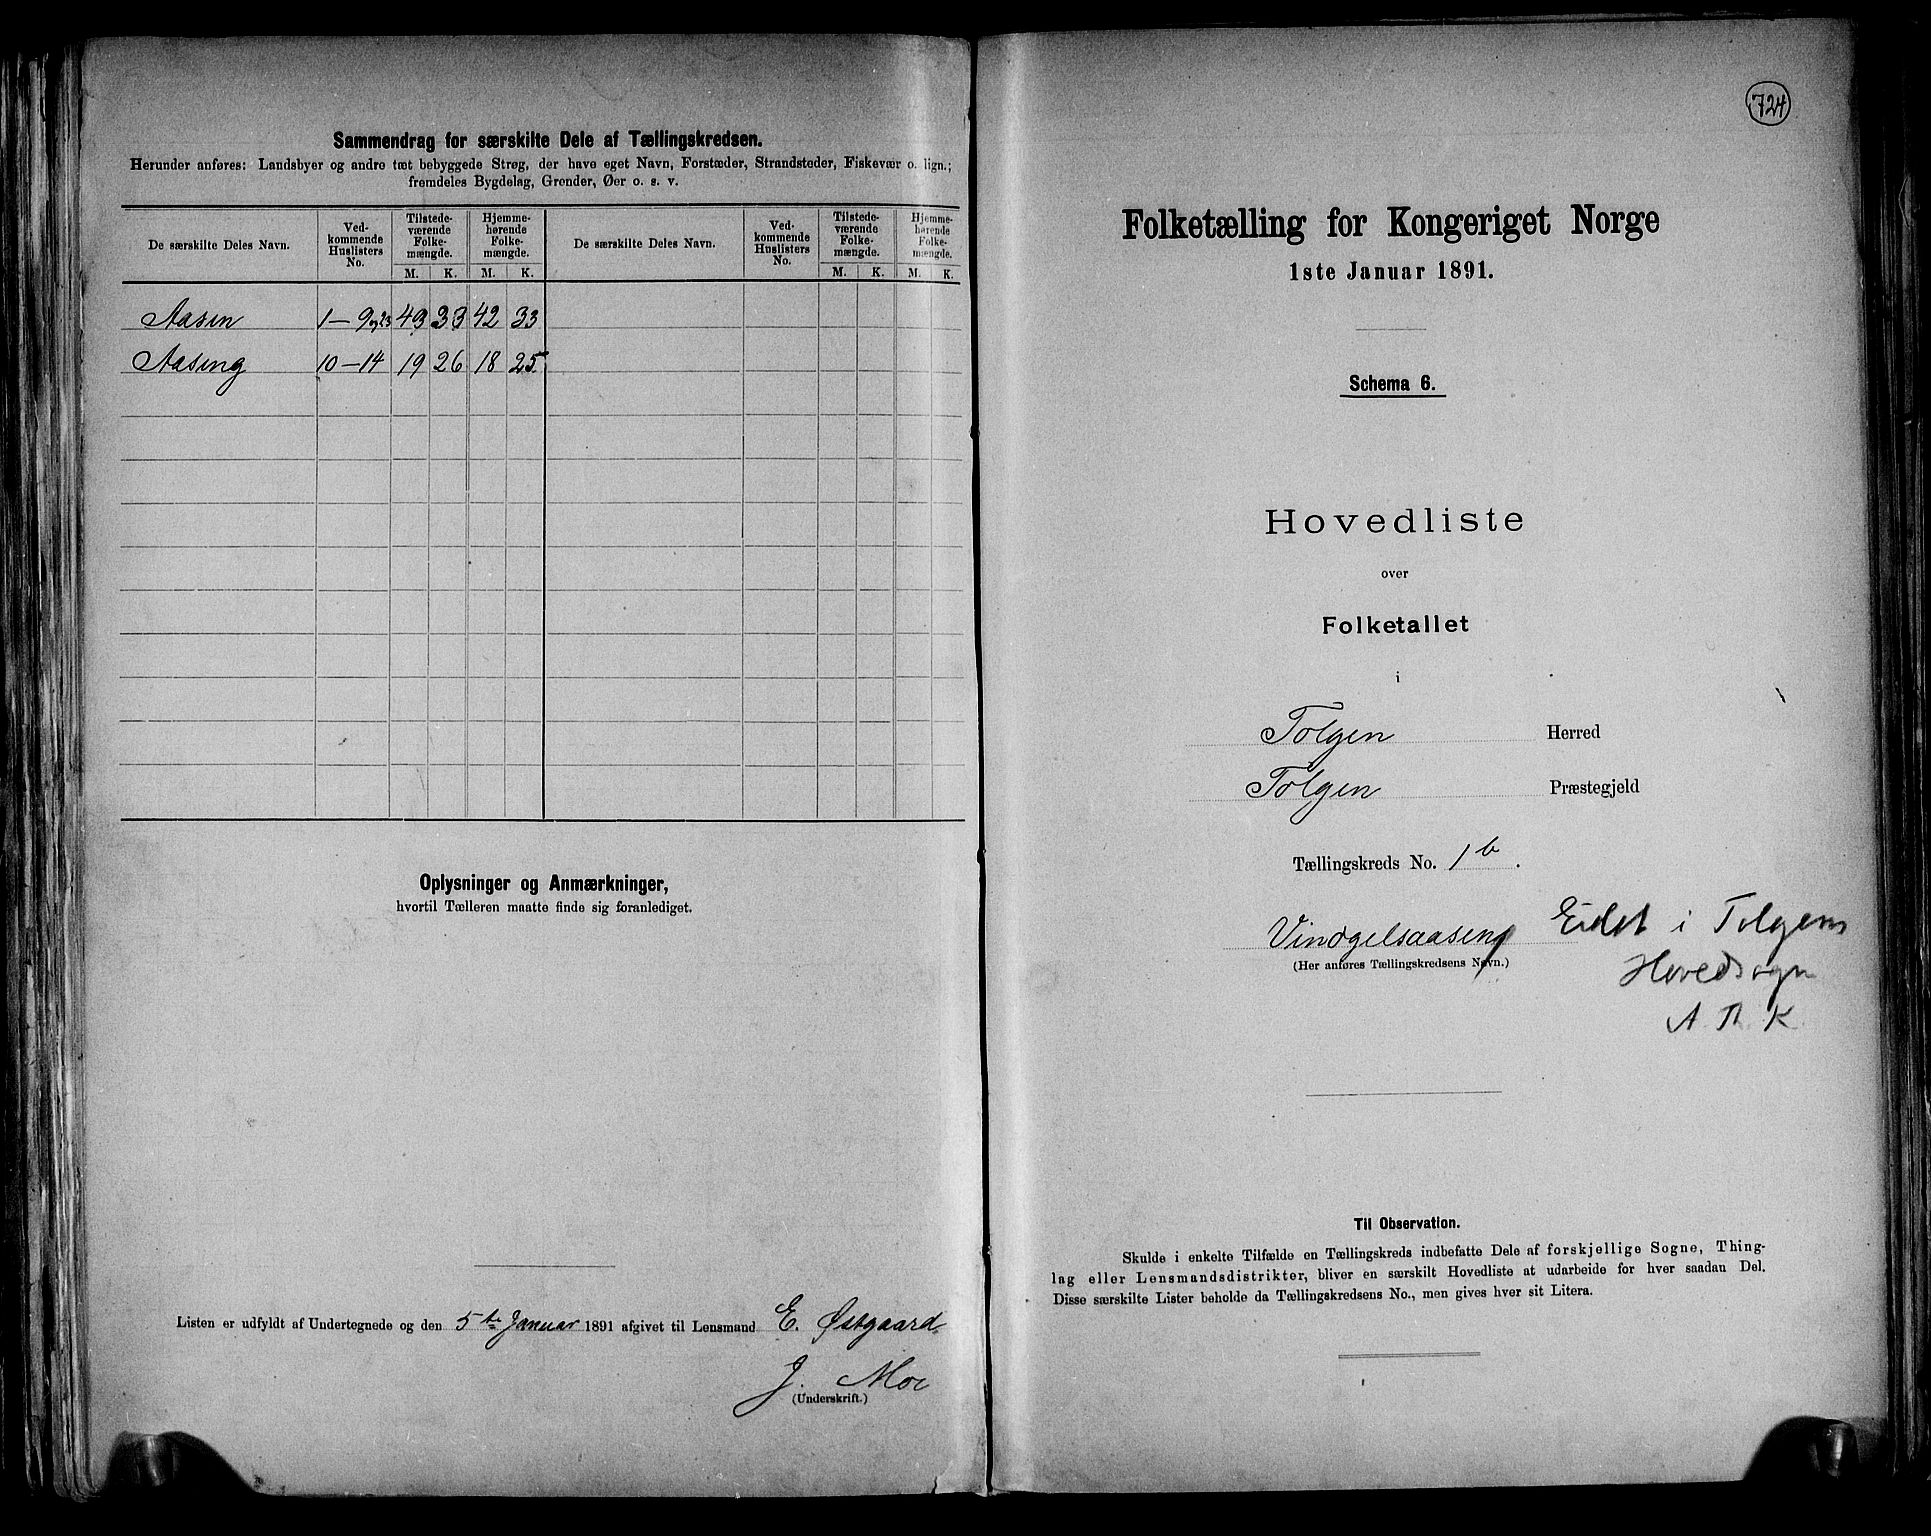 Sammendrag for særskilte Dele af Tællingskredsen.
Herunder anføres: Landsbyer og andre tæt bebyggede Strøg, der have eget Navn, Forstæder, Strandsteder, Fiskevær o. lign.;
fremdeles Bygdelag, Grender, Øer o. s. v.
De særskilte Deles Navn. Ved-kommende Huslisters No. Tilstede-værende Folke-mængde. Hjemme-hørende Folke-mængde. De særskilte Deles Navn. Ved-kommende Huslisters No. Tilstede-værende Folke-mængde. Hjemme-hørende Folke-mængde.
M. K. M. K. M. K. M. K.
Aasen 1–9 og 23 43 33 42 33
Aaseng 10–14 19 26 18 25
Oplysninger og Anmærkninger,
hvortil Tælleren maatte finde sig foranlediget.
Listen er udfyldt af Undertegnede og den 5te Januar 1891 afgivet til Lensmand E. Østgaard
J. Moe
(Underskrift.)
724
Folketælling for Kongeriget Norge
1ste Januar 1891.
Schema 6.
Hovedliste
over
Folketallet
i
Tolgen Herred
Tolgen Præstegjeld
Tællingskreds No. 1 b.
Vingelsaasen Eidet i Tolgens
(Her anføres Tællingskredsens Navn.)
Hovedsogn
A. Th. K
Til Observation.
Skulde i enkelte Tilfælde en Tællingskreds indbefatte Dele af forskjellige Sogne, Thing-
lag eller Lensmandsdistrikter, bliver en særskilt Hovedliste at udarbeide for hver saadan Del.
Disse særskilte Lister beholde da Tællingskredsens No., men gives hver sit Litera.